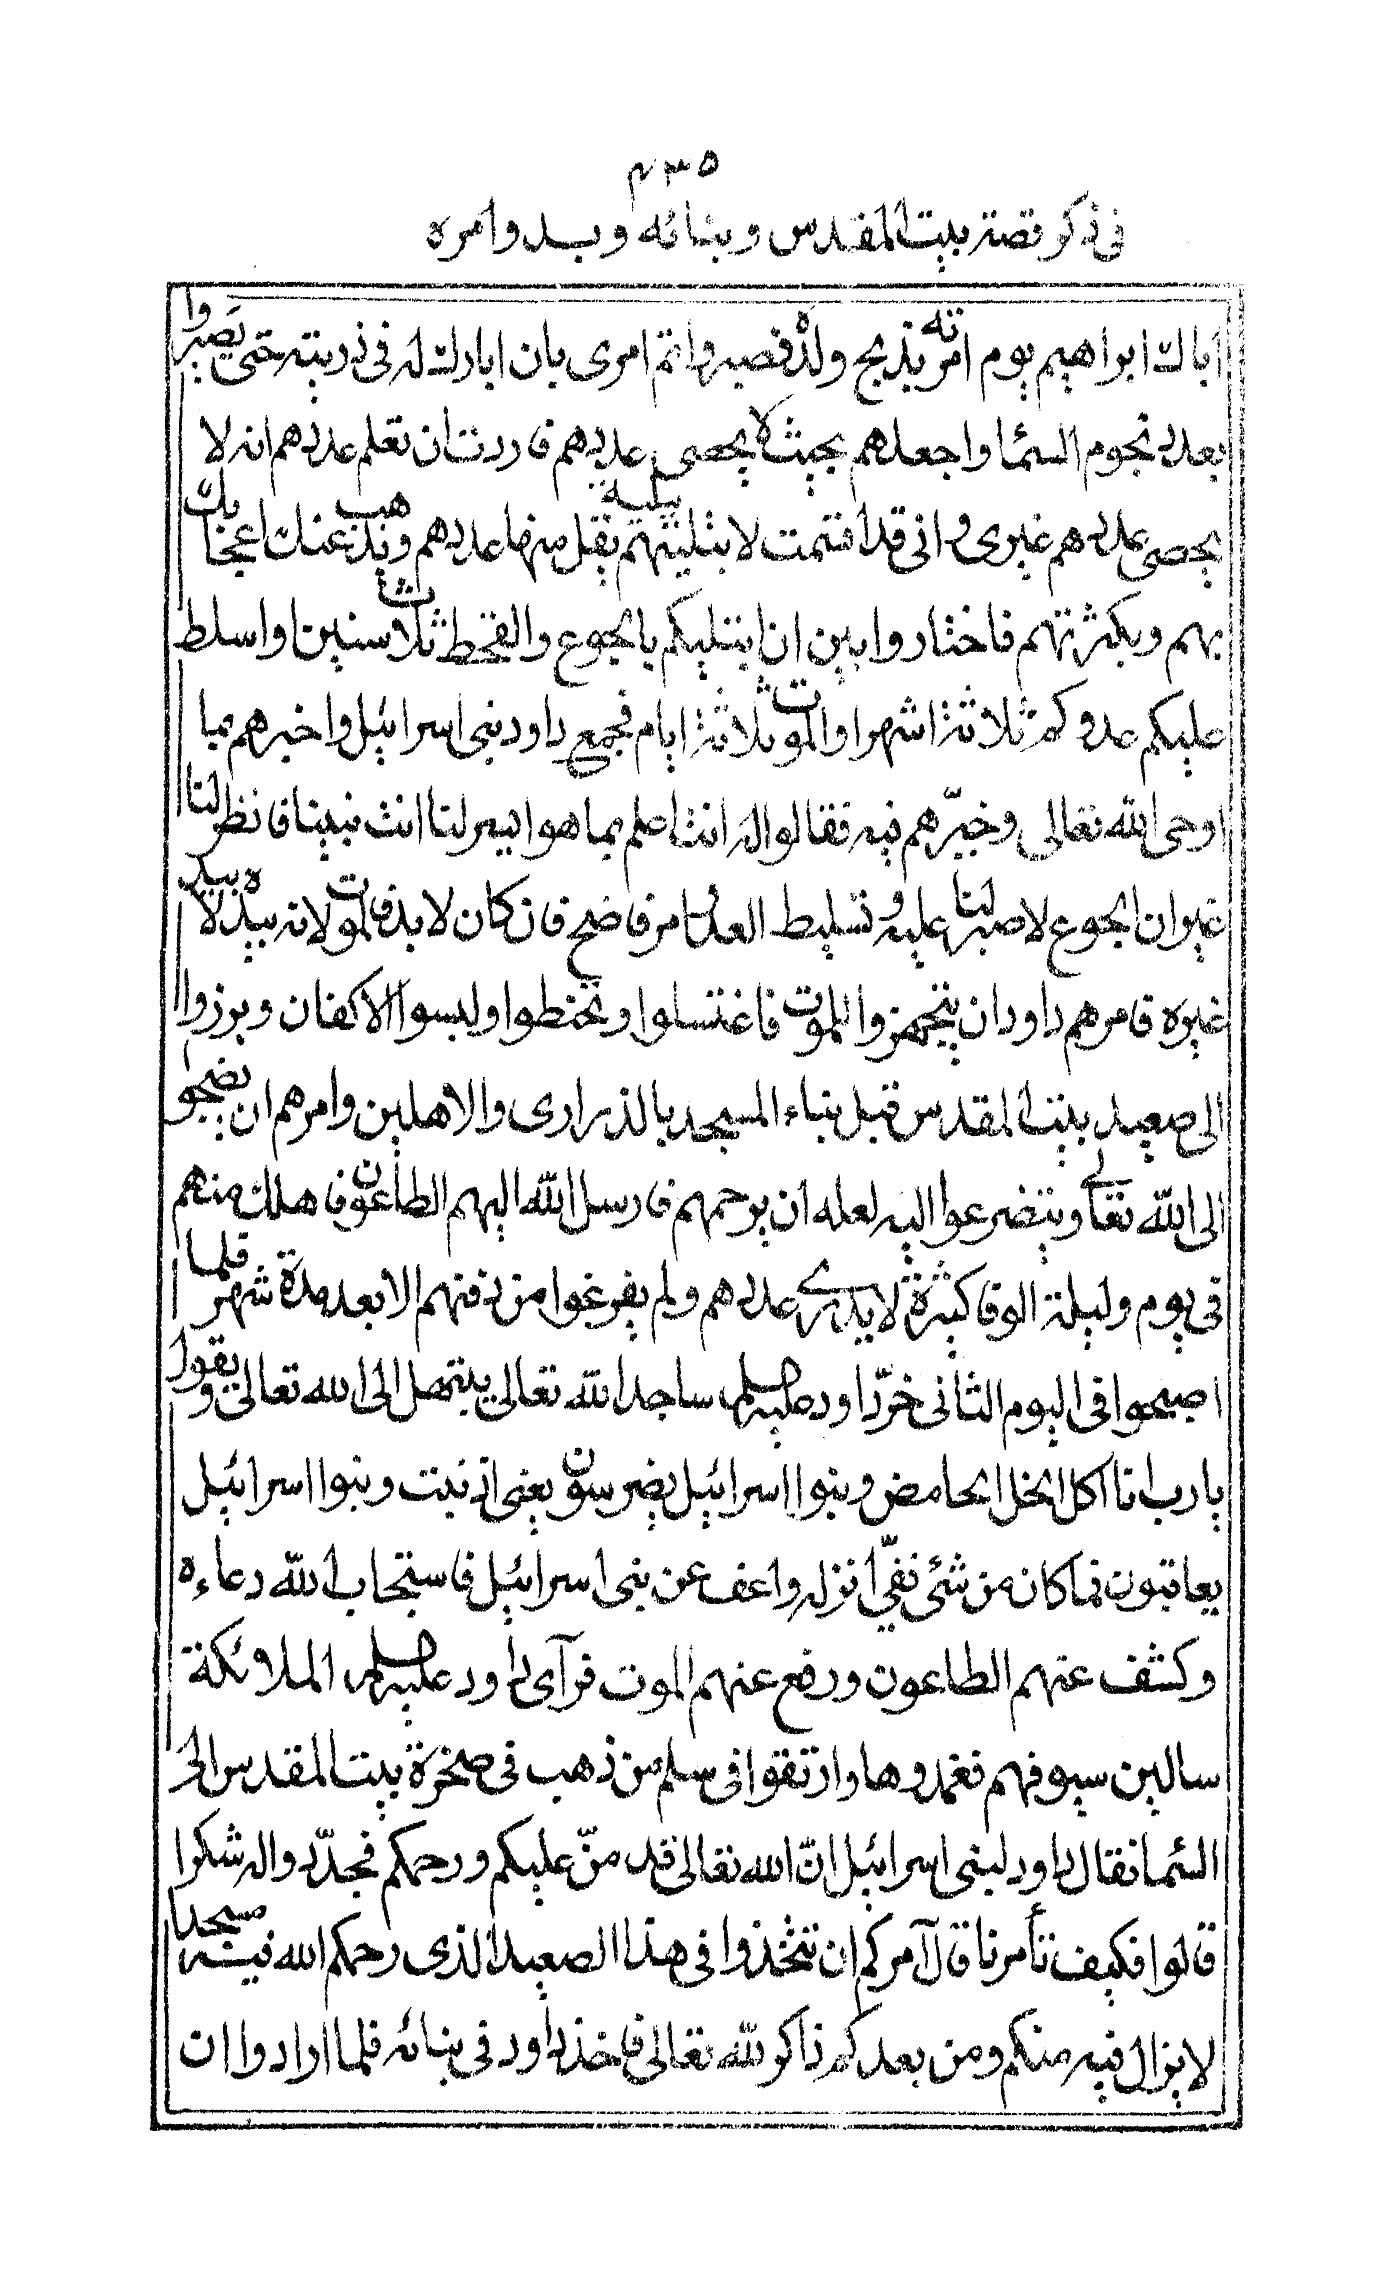 ٤٣٥
فى ذكر قصة بيت المقدس وبنائه وبدو امره
اباك ابراهيم يوم امرته بذبح ولده فصبر واتم امرى بان ابارك له فى ذريته حتى يصيروا
بعدد نجوم السما واجعلهم بحيث لا يحصى عددهم فاردت ان تعلم عددهم انه لا
يحصى عددهم غيرى وانى قد اقتمت لابتلينهم ببلية يقل منها عددهم ويذهب عنك اعجابك
بهم وبكثرتهم فاختاروا بين ان ابتليكم بالجوع والقحط ثلاث سنين او اسلط
عليكم عدوكم ثلاثة اشهر او الموت ثلاثة ايام فجمع داود بنى اسرائيل واخبرهم بما
اوحى الله تعالى وخيّرهم فيه فقالوا له انت اعلم بما هو ايسر لنا انت نبينا فانظر لنا
غير ان الجوع لا صبر لنا عليه وتسليط العدو امر فاضح فان كان لا بد فالموت لانه بيده لا بيد
غيره فامرهم داود ان يتجهزوا للموت فاغتسلوا وتحنطوا ولبسوا الاكفان وبرزوا
الى صعيد بيت المقدس قبل بناء المسجد بالذرارى والاهلين وامرهم ان يضجوا
الى الله تعالى ويتضرعوا اليه لعله ان يرحمهم فارسل الله اليهم الطاعون فاهلك منهم
فى يوم وليلة الوفا كثيرة لا يدرى عددهم ولم يفرغوا من دفنهم الا بعد مدة شهر فلما
اصبحوا فى اليوم الثانى خرّ داود عليه السلام ساجدا لله تعالى يبتهل الى الله تعالى ويقول
يارب انا آكل الخل الحامض وبنوا اسرائيل يضرسون يعنى اذنبت وبنوا اسرائيل
يعاقبون فما كان من شئى ففىّ انزله واعف عن بنى اسرائيل فاستجاب الله دعاءه
وكشف عنهم الطاعون ورفع عنهم الموت فرآى داود عليه السلام الملائكة
سالين سيوفهم فغمدوها وارتقوا فى سلم من ذهب فى صخرة بيت المقدس الى
السما فقال داود لبنى اسرائيل انّ الله تعالى قد منّ عليكم ورحمكم فجدّدوا له شكرا
قالوا فكيف تأمرنا قال آمركم ان تتخذوا فى هذا الصعيد الذى رحمكم الله فيه مسجدا
لا يزال فيه منكم ومن بعدكم ذاكر لله تعالى فاخذ داود فى بنائه فلما ارادوا ان